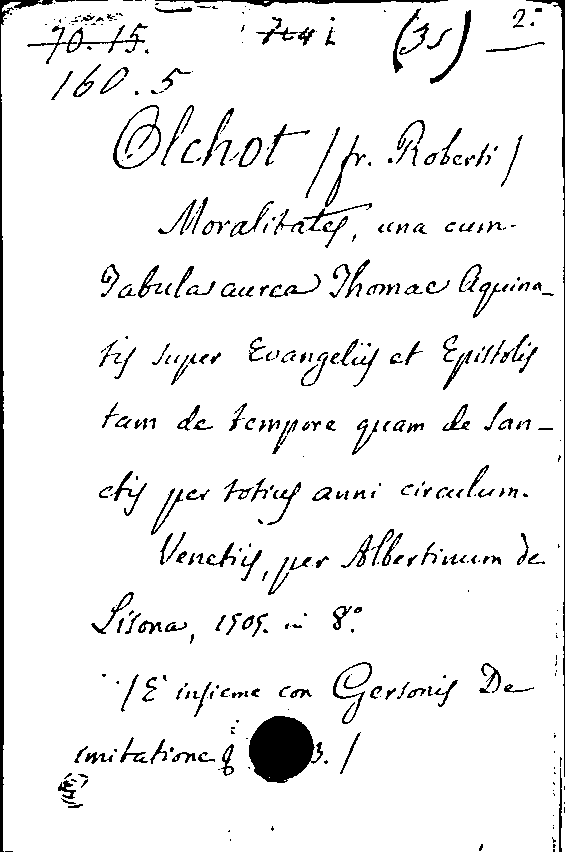 70.15. 7241 (35) 2.
160.5
Olchot /fr. Roberti/
Moralitates, una cum
Tabulas aurea Thomae Aquina-
tis super Evangeliis et Epistolis
tam de tempore quam de San-
ctis per totius anni circulum.
Venetiis, per Albertinum de
Lisona, 1505. in 8.º
/È insieme con Gersonis De
imitatione 3./